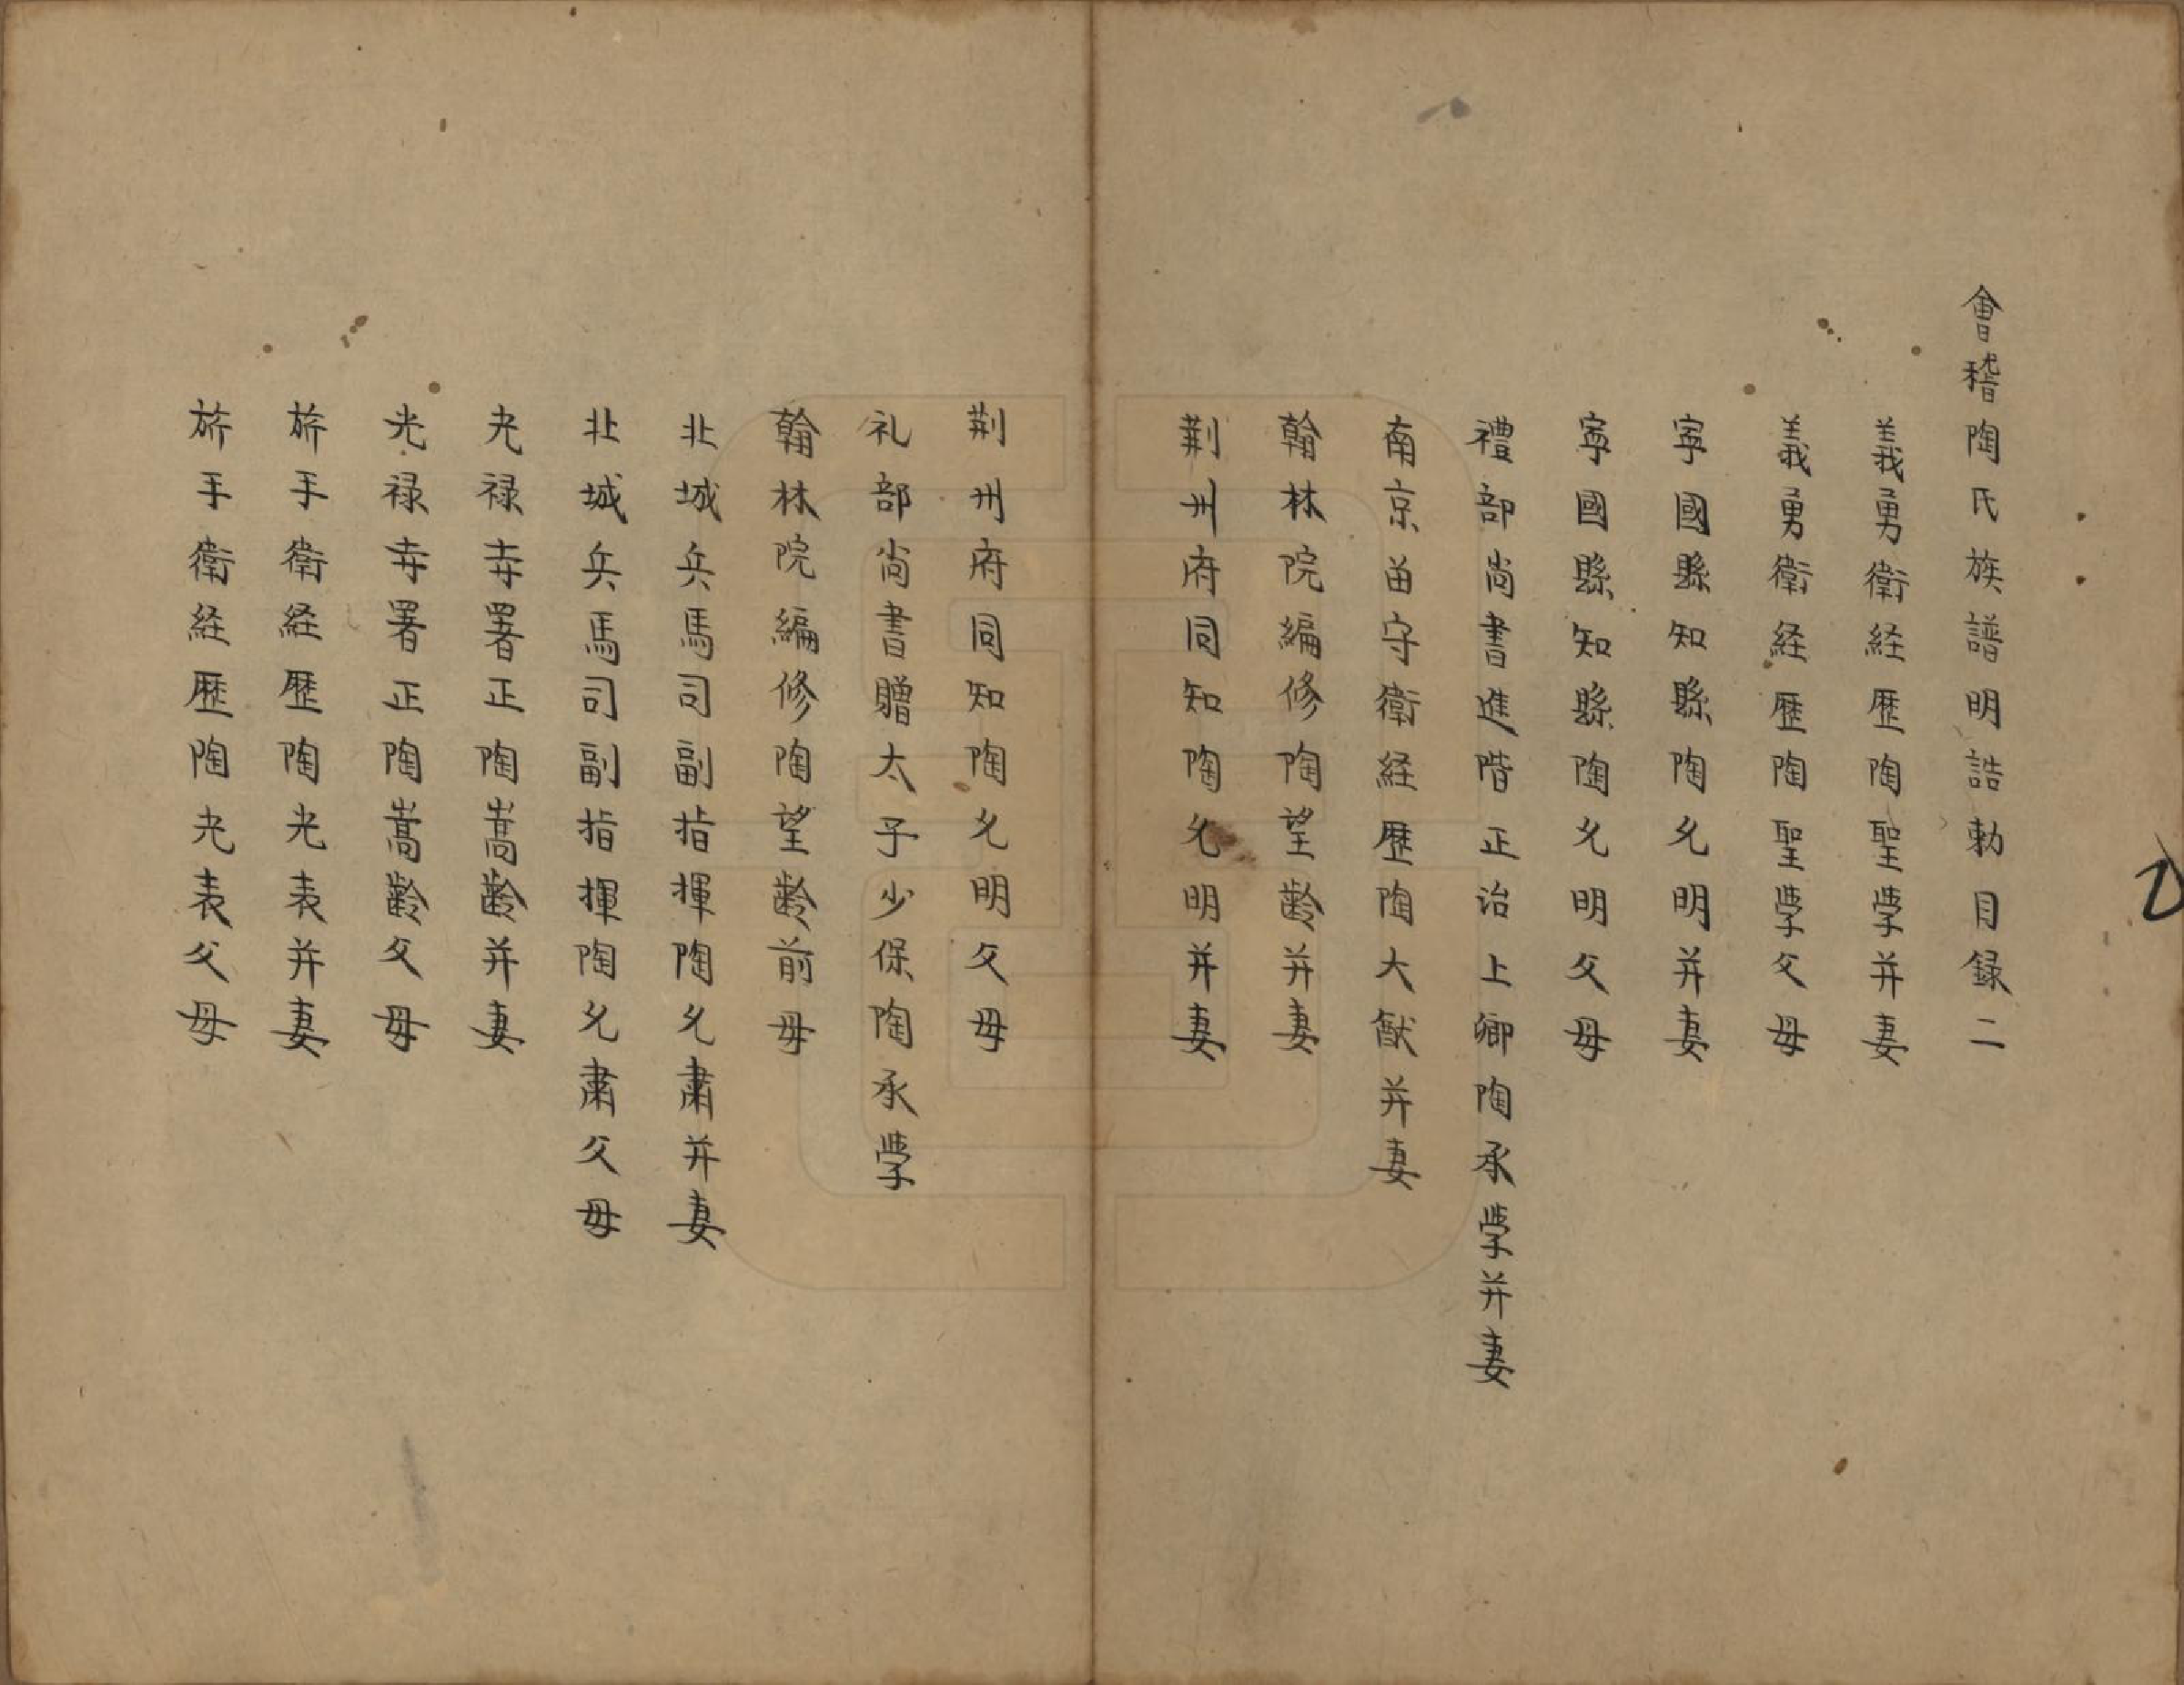 會稽陶氏族譜明誥勅目録二
義勇衛経歷陶聖學并妻
義勇衛経歷陶聖學父母
寧國縣知縣陶允明并妻
寧國縣知縣陶允明父母
禮部尚書進階正治上卿陶承學并妻
南京畄守衛経歷陶大猷并妻
翰林院編修陶望齡并妻
荆州府同知陶允明并妻
荆州府同知陶允明父母
礼部尚書贈太子少保陶承學
翰林院編修陶望齡前母
北城兵馬司副指揮陶允肅并妻
北城兵馬司副指揮陶允肅父母
光禄寺署正陶嵩齡并妻
光禄寺署正陶嵩齡父母
旂手衛経歷陶光表并妻
旂手衛経歷陶光表父母